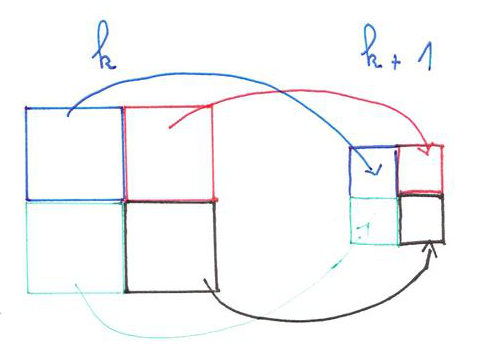 k
k + 1